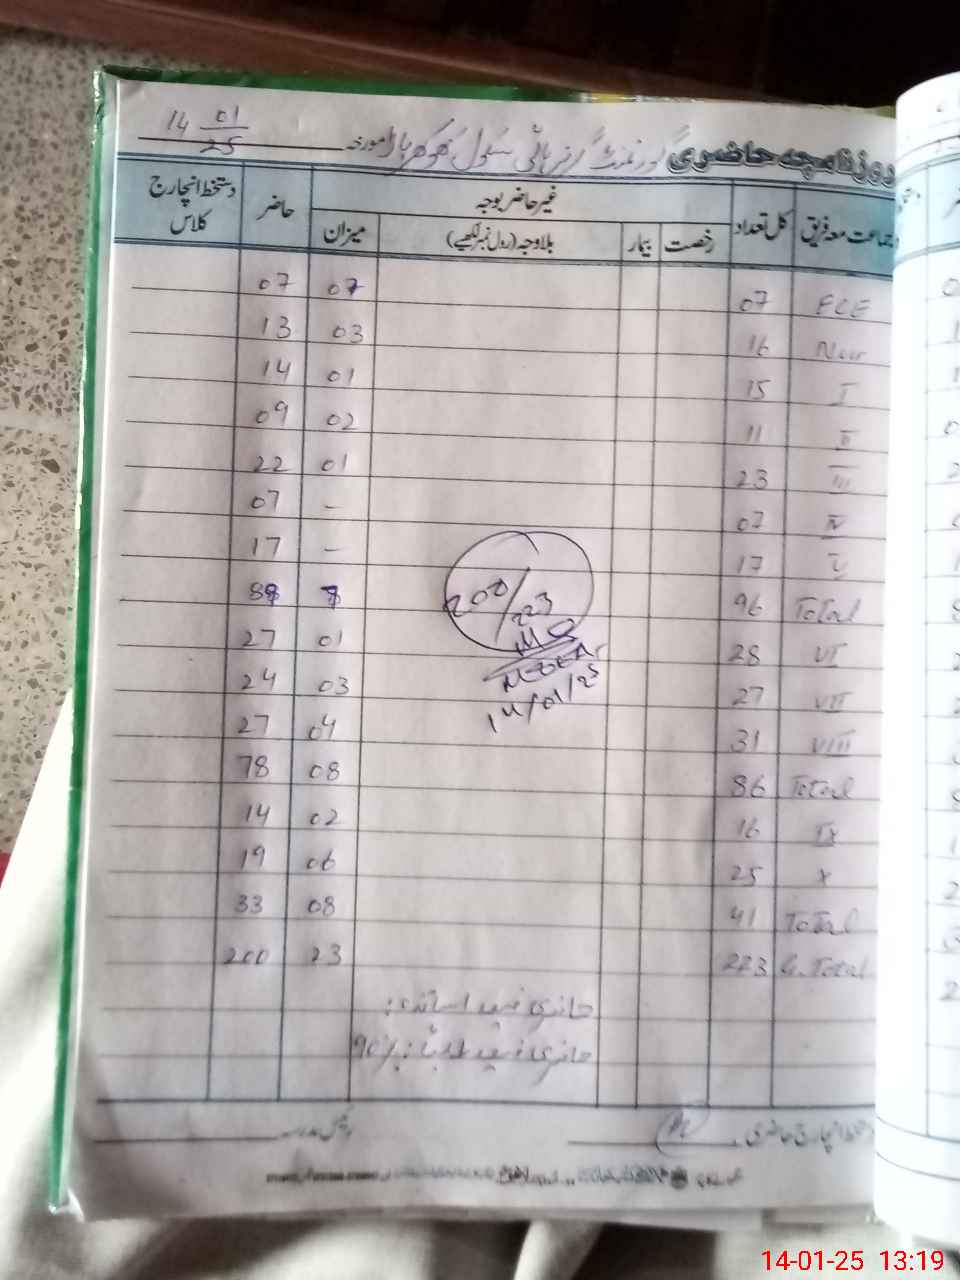 روزنامچہ حاضری گورنمنٹ گرلز ہائی سکول کھوکھر بالا مورخہ 14 01/25
جماعت معہ فریق کل تعداد غیر حاضر بوجہ حاضر دستخط انچارج کلاس
رخصت بیمار بلاوجہ (رول نمبر لکھیے) میزان
ECE 07 07 07
Nur 16 03 13
I 15 01 14
II 11 02 09
III 23 01 22
IV 07 – 07
V 17 – 17
Total 96 8 88
VI 28 01 27
VII 27 03 24
VIII 31 04 27
Total 86 08 78
IX 16 02 14
X 25 06 19
Total 41 08 33
G. Total 223 23 200
200/223
14/01/25
حاضری فیصد اساتذہ:
حاضری فیصد طلباء: 90%
دستخط انچارج حاضری
رئیس مدرسہ
14-01-25 13:19